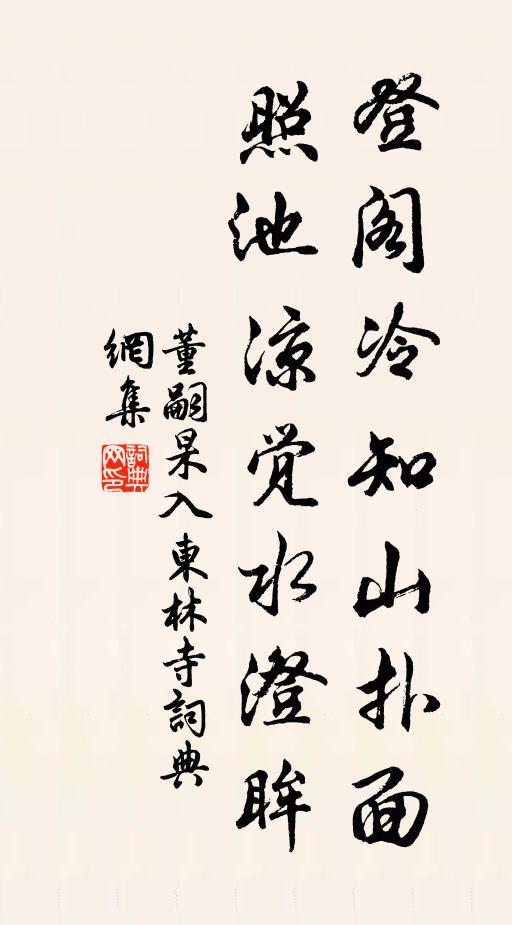 登阁冷知山扑面
照池凉觉水澄眸
董嗣杲入東林寺詞典
網集
詞典網印